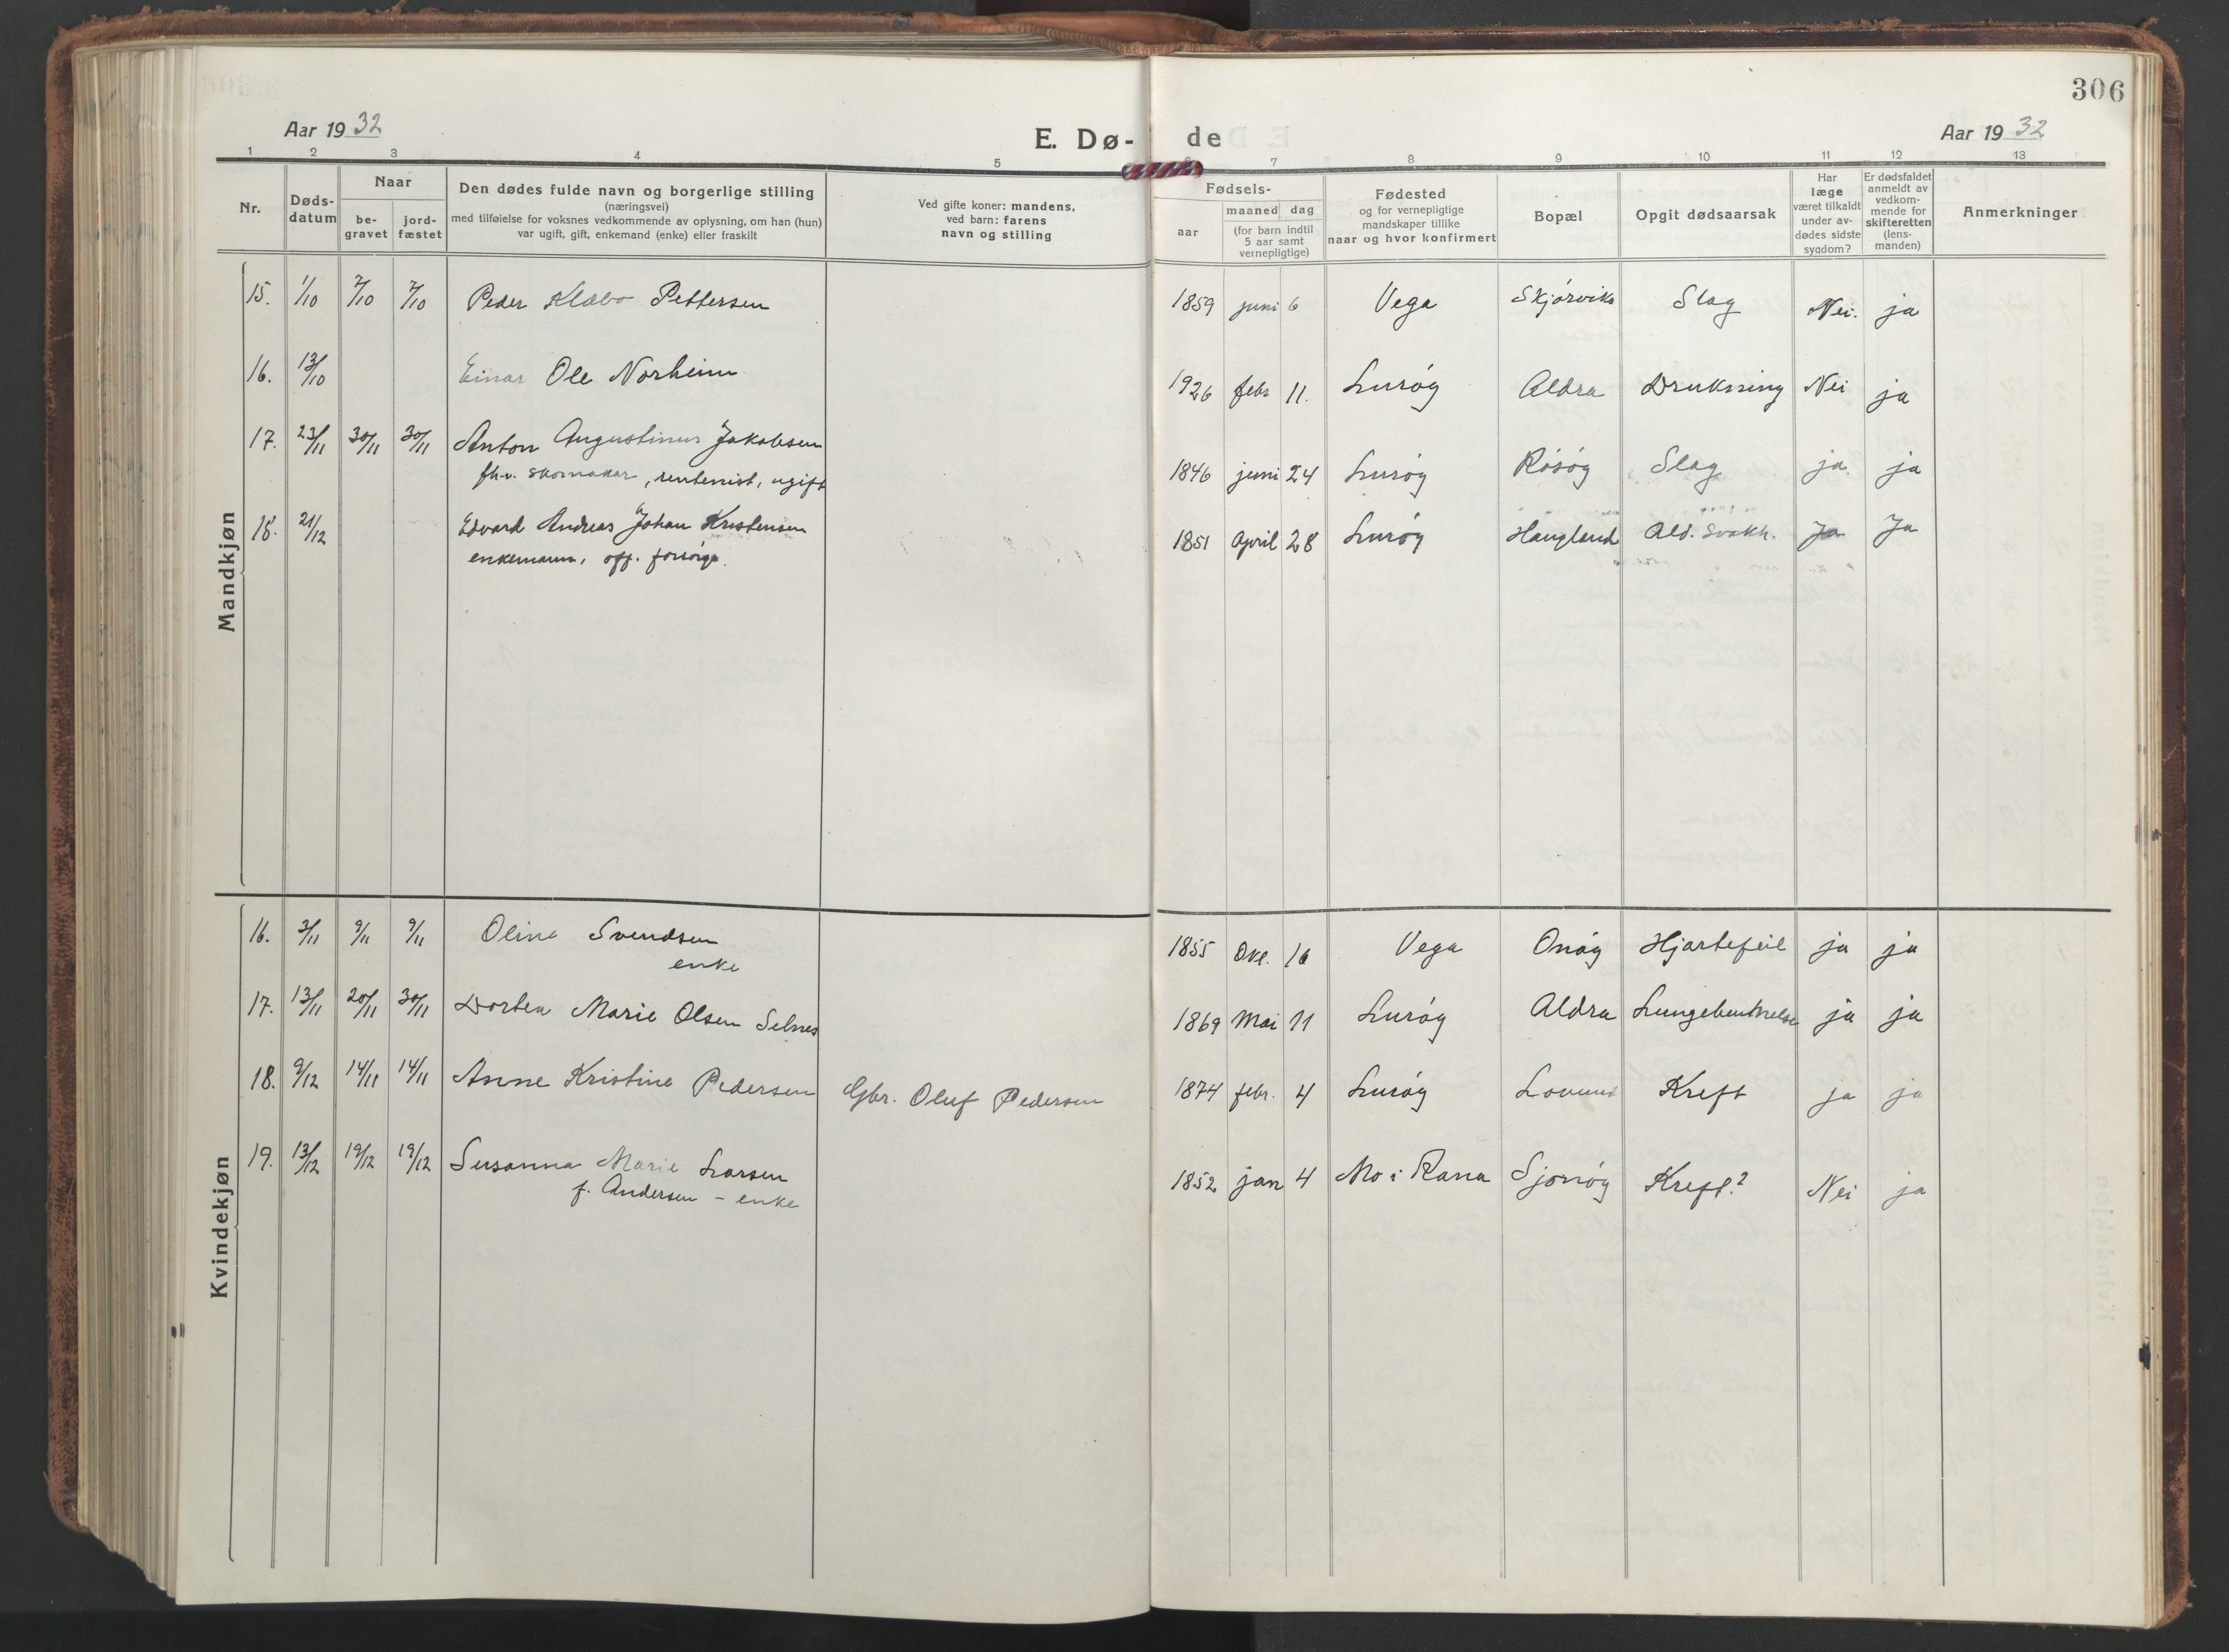 306
Aar 1932
E. Dø-
de
Aar 1932
1 2 3 4 5 6 7 8 9 10 11 12 13
Nr.
Døds-
datum
Naar
be-
gravet
jord-
fæstet
Den dødes fulde navn og borgerlige stilling
(næringsvei)
med tilføielse for voksnes vedkommende av oplysning, om han (hun)
var ugift, gift, enkemand (enke) eller fraskilt
Ved gifte koner: mandens,
ved barn: farens
navn og stilling
Fødsels-
aar
maaned dag
(for barn indtil
5 aar samt
vernepligtige)
Fødested
og for vernepligtige
mandskaper tillike
naar og hvor konfirmert
Bopæl
Opgit dødsaarsak
Har
læge
været tilkaldt
under av-
dødes sidste
sygdom?
Er dødsfaldet
anmeldt av
vedkom-
mende for
skifteretten
(lens-
manden)
Anmerkninger
Mandkjøn
15. 1/10 7/10 7/10 Peder Klæbo Pettersen 1859 juni 6 Vega Skjórvika Slag Nei. ja
16. 13/10 Einar Ole Norheim 1926 febr 11. Luróy Aldra Drukning Nei ja
17. 23/11 30/11 30/11 Anton Augustinus Jakobsen 1846 juni 24 Luróy Rósóy Slag ja. ja
fh.v. skomaker, rentenist, ugift
18. 21/12 Edvard Andreas Johan Kristensen 1851 April 28 Luróy Haugland Ald. svakh. Ja Ja
enkemann, off. forsórge.
Kvindekjøn
16. 3/11 9/11 9/11 Oline Svendsen 1855 Okt. 16 Vega Onóy Hjartefeil ja ja
enke
17. 13/11 20/11 30/11 Dortea Marie Olsen Selnes 1869 Mai 11 Luróy Aldra Lungebetennelse ja ja
18. 9/12 14/11 14/11 Anne Kristine Pedersen Gbr. Oluf Pedersen 1874 febr. 4 Luróy Lovund Kreft ja ja
19. 13/12 19/12 19/12 Susanna Marie Larsen 1852 jan 4 Mo i Rana Sjonóy Kreft? Nei ja
f. Andersen - enke